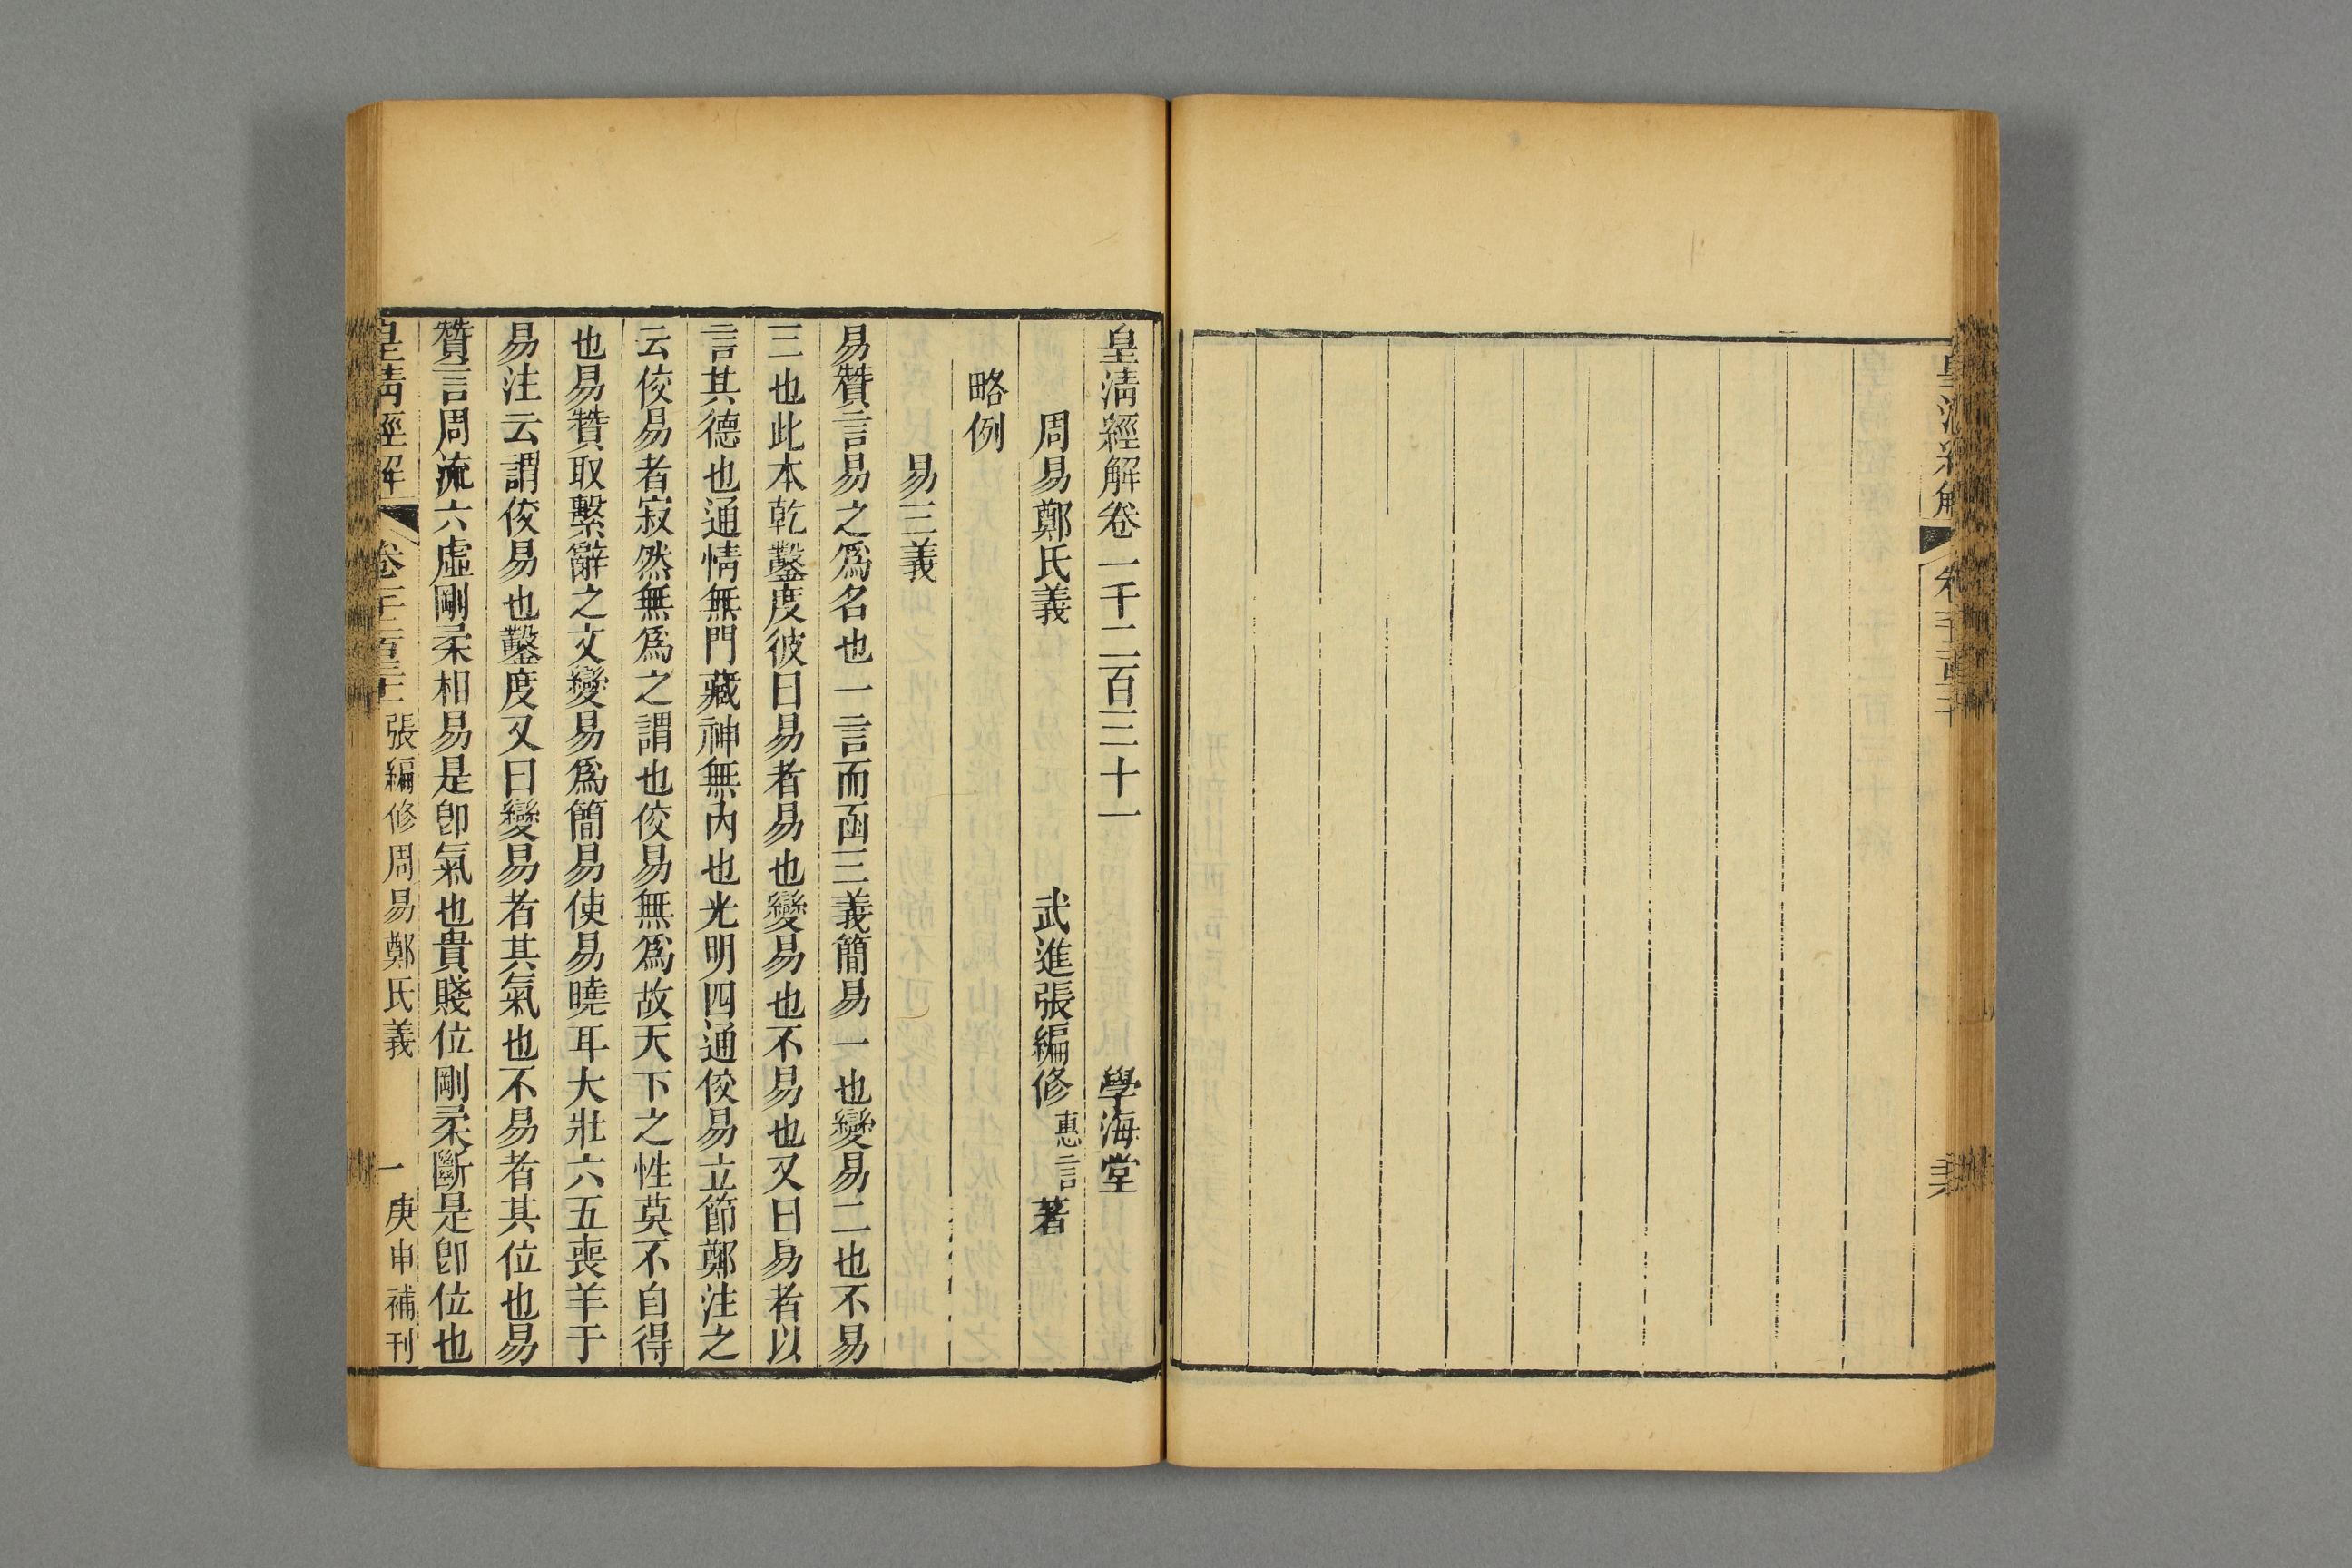 皇清經解
皇清經解卷一千二百三十一 學海堂
周易鄭氏義 武進張編修惠言著
略例
易三義
易贊言易之爲名也一言而函三義簡易一也變易二也不易
三也此本乾鑿度彼曰易者易也變易也不易也又曰易者以
言其德也通情無門藏神無內也光明四通佼易立節鄭注之
云佼易者寂然無爲之謂也佼易無爲故天下之性莫不自得
也易贊取繫辭之文變易爲簡易使易曉耳大壯六五喪羊于
易注云謂佼易也鑿度又曰變易者其氣也不易者其位也易
贊言周流六虛剛柔相易是卽氣也貴賤位剛柔斷是卽位也
皇清經解 卷一千二百三十一 張編修周易鄭氏義 一 庚申補刊